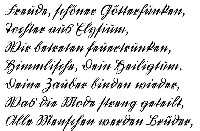 Freude, schöner Götterfunken,
Tochter aus Elysium,
Wir betreten feuertrunken,
Himmlische, Dein Heiligtum.
Deine Zauber binden wieder,
Was die Mode streng geteilt,
Alle Menschen werden Brüder,